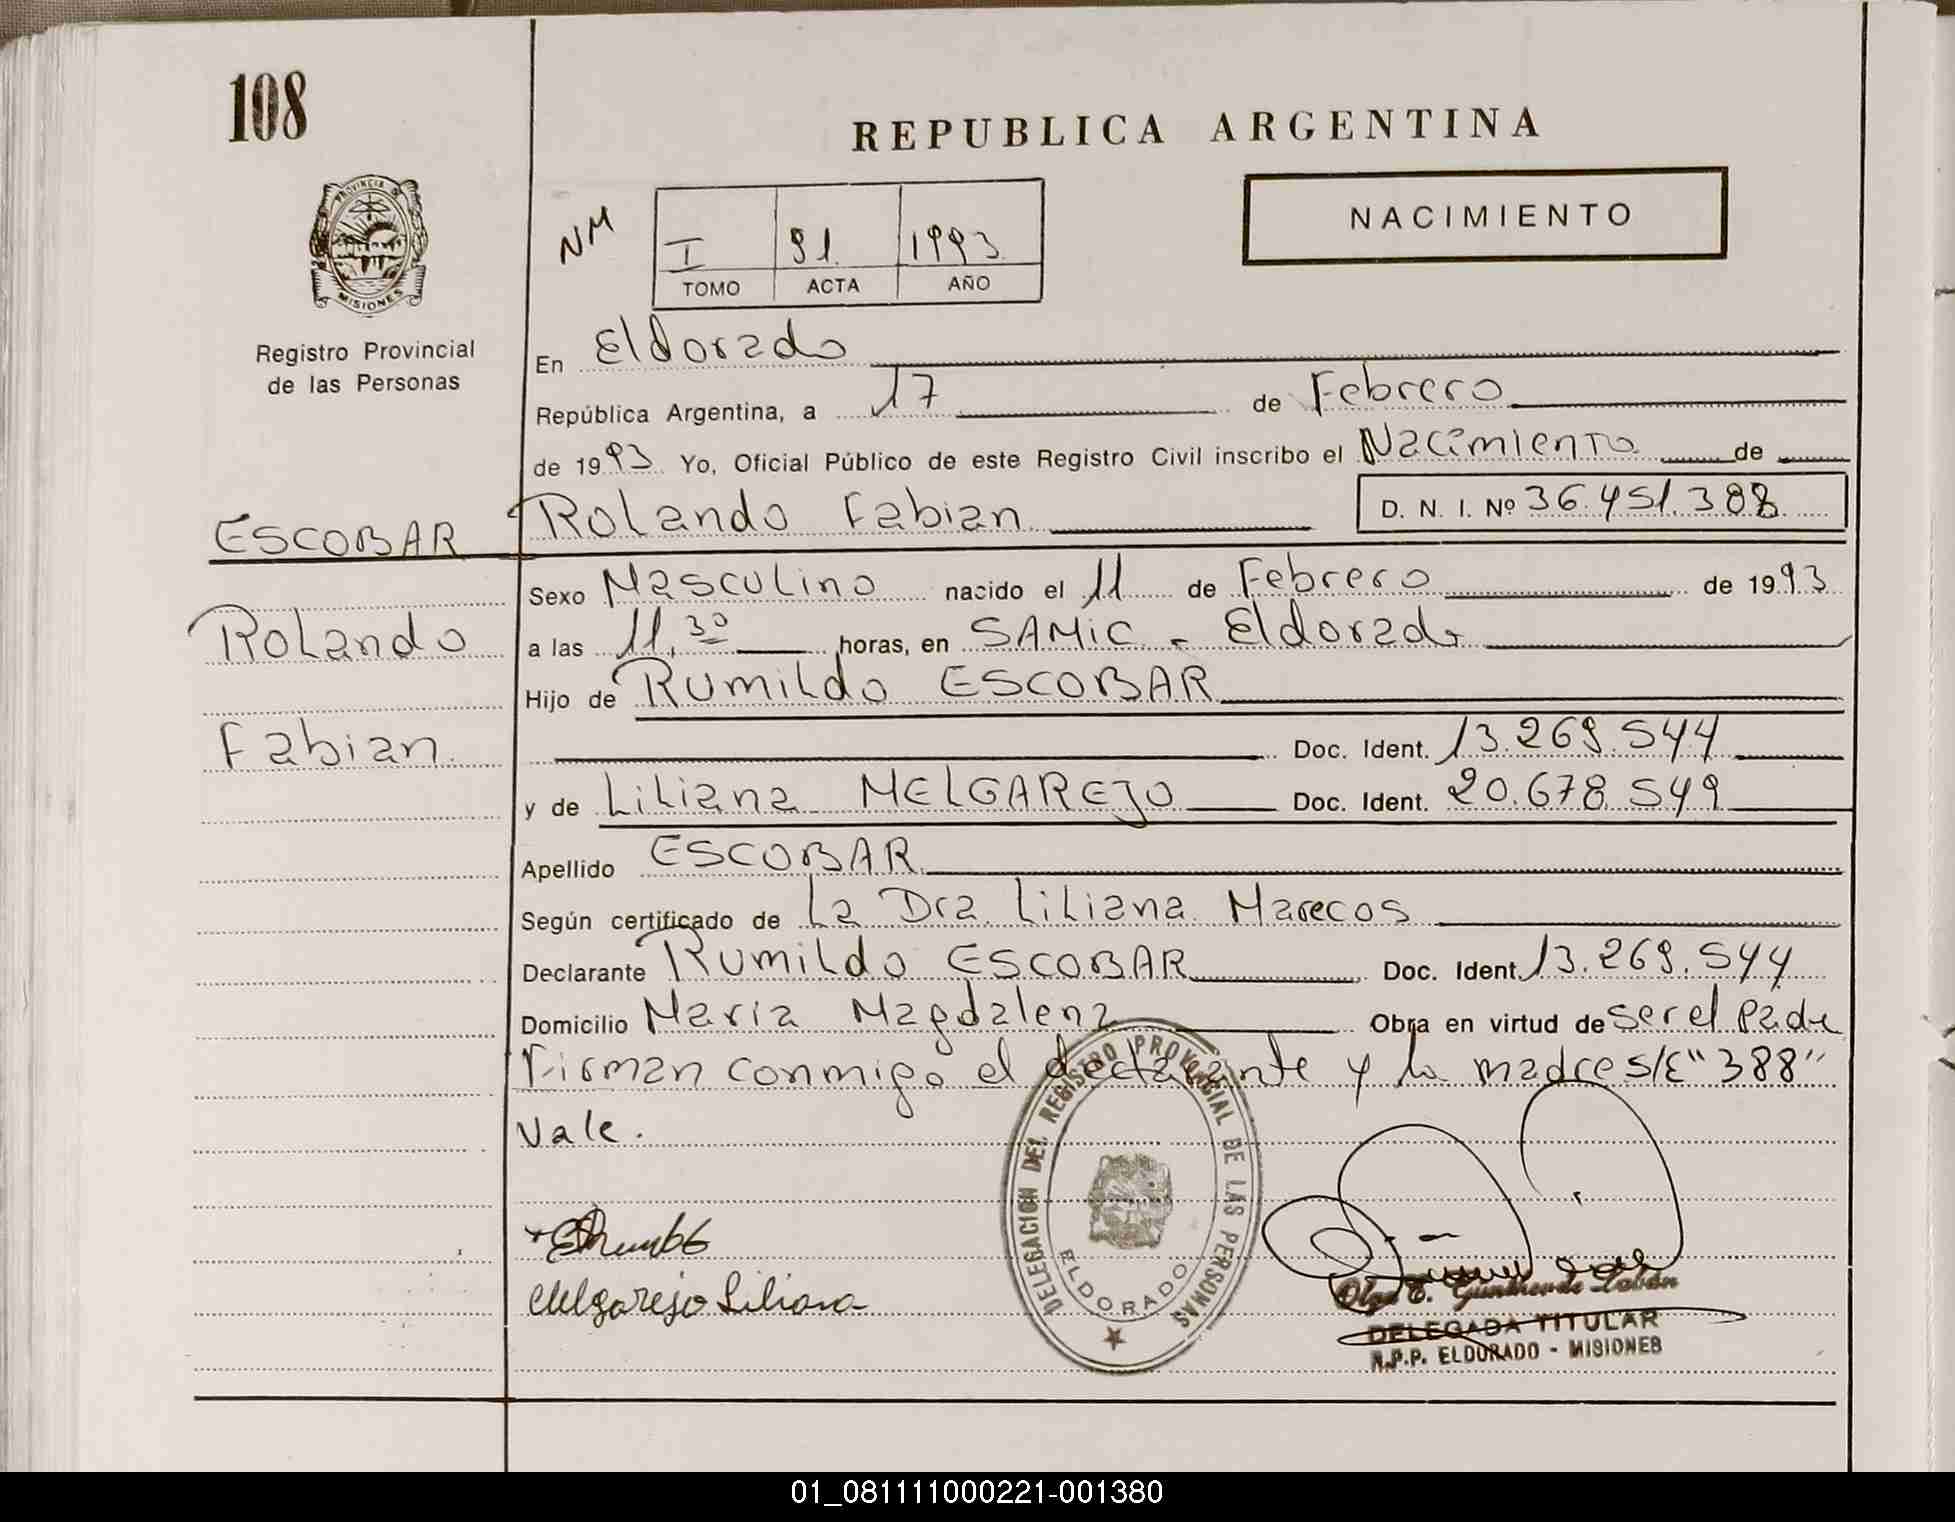 108
REPUBLICA ARGENTINA
PROVINCIA DE
MISIONES
NM
I 91. 1993
TOMO ACTA AÑO
NACIMIENTO
Registro Provincial
de las Personas
En Eldorado
República Argentina, a 17 de Febrero
de 1993 Yo, Oficial Público de este Registro Civil inscribo el Nacimiento de
ESCOBAR Rolando Fabian D. N. I. Nº 36.451.388
Sexo Masculino nacido el 11 de Febrero de 1993
Rolando a las 11,30 horas, en SAMiC - Eldorado
Hijo de Rumildo ESCOBAR
Fabian. Doc. Ident. 13.269.544
y de Liliana MELGAREJO Doc. Ident. 20.678.549
Apellido ESCOBAR
Según certificado de La Dra. Liliana Marecos
Declarante Rumildo ESCOBAR Doc. Ident. 13.269.544
Domicilio Maria Magdalena Obra en virtud de ser el Padre
Firman conmigo el declarante y la madre s/E "388"
Vale.
DELEGACION DEL REGISTRO PROVINCIAL DE LAS PERSONAS
ELDORADO
Melgarejo Liliana
Olga E.
DELEGADA TITULAR
R.P.P. ELDORADO - MISIONES
01_081111000221-001380